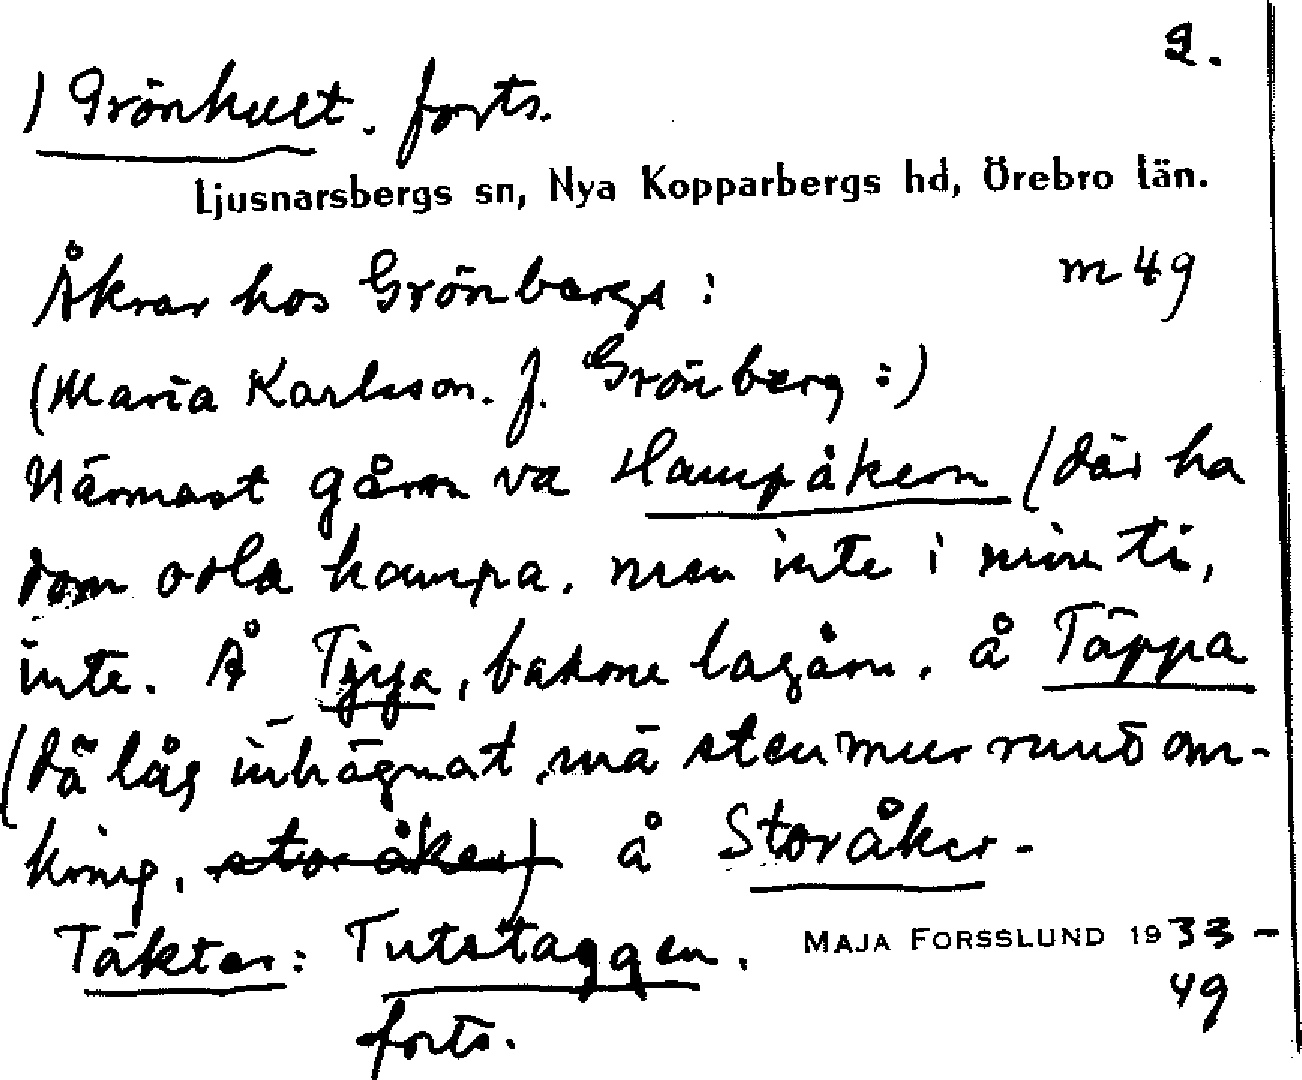 2.
) Grönhult. forts.
Ljusnarsbergs sn, Nya Kopparbergs hd, Örebro län.
Åkrar hos Grönbergs : m 49
(Maria Karlsson. f. Grönberg :)
Närmast gårn va Hampåkern (där ha
dom odla hampa, men inte i min ti,
inte. Å Tjyga, bakom lagårn, å Täppa
(dä låg inhägnat mä stenmur runt om-
kring, storåker) å Storåker-
Täkter: Tutstaggen.
MAJA FORSSLUND 1933-
49
forts.